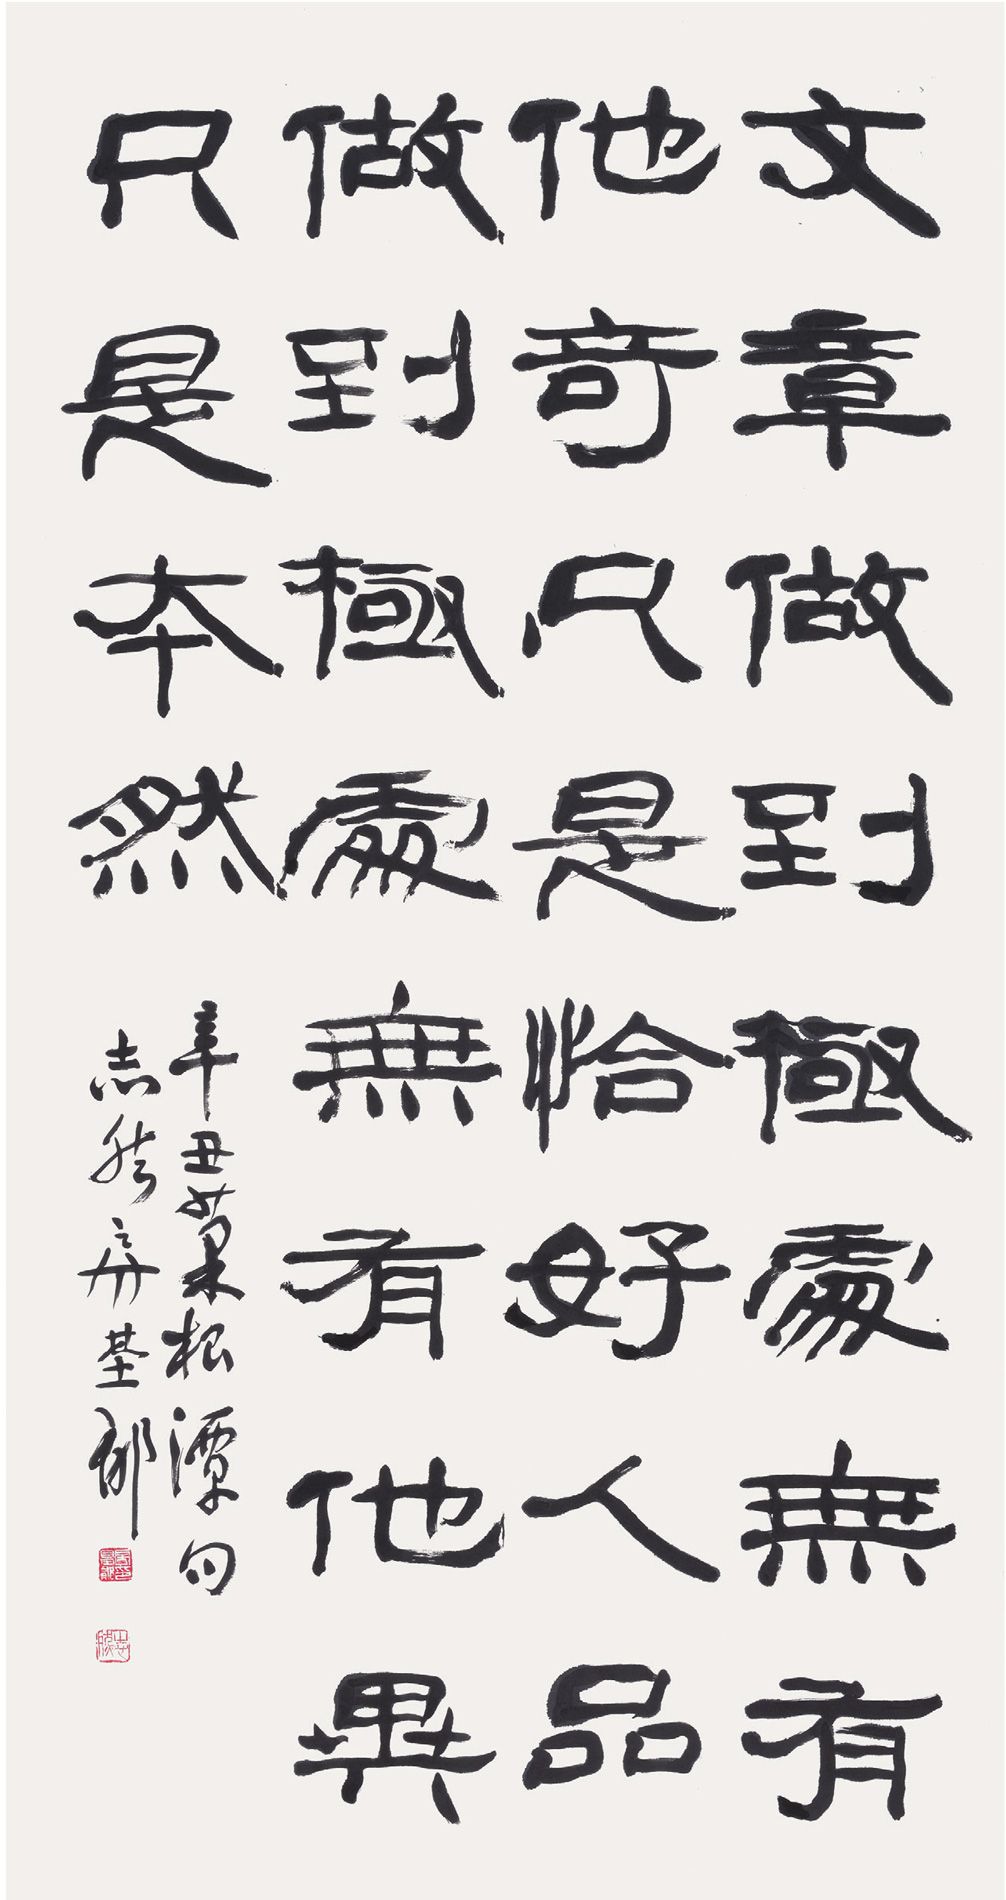 文章做到極處無有
他奇只是恰好人品
做到極處無有他異
只是本然
辛丑菜根潭句
志然基郁